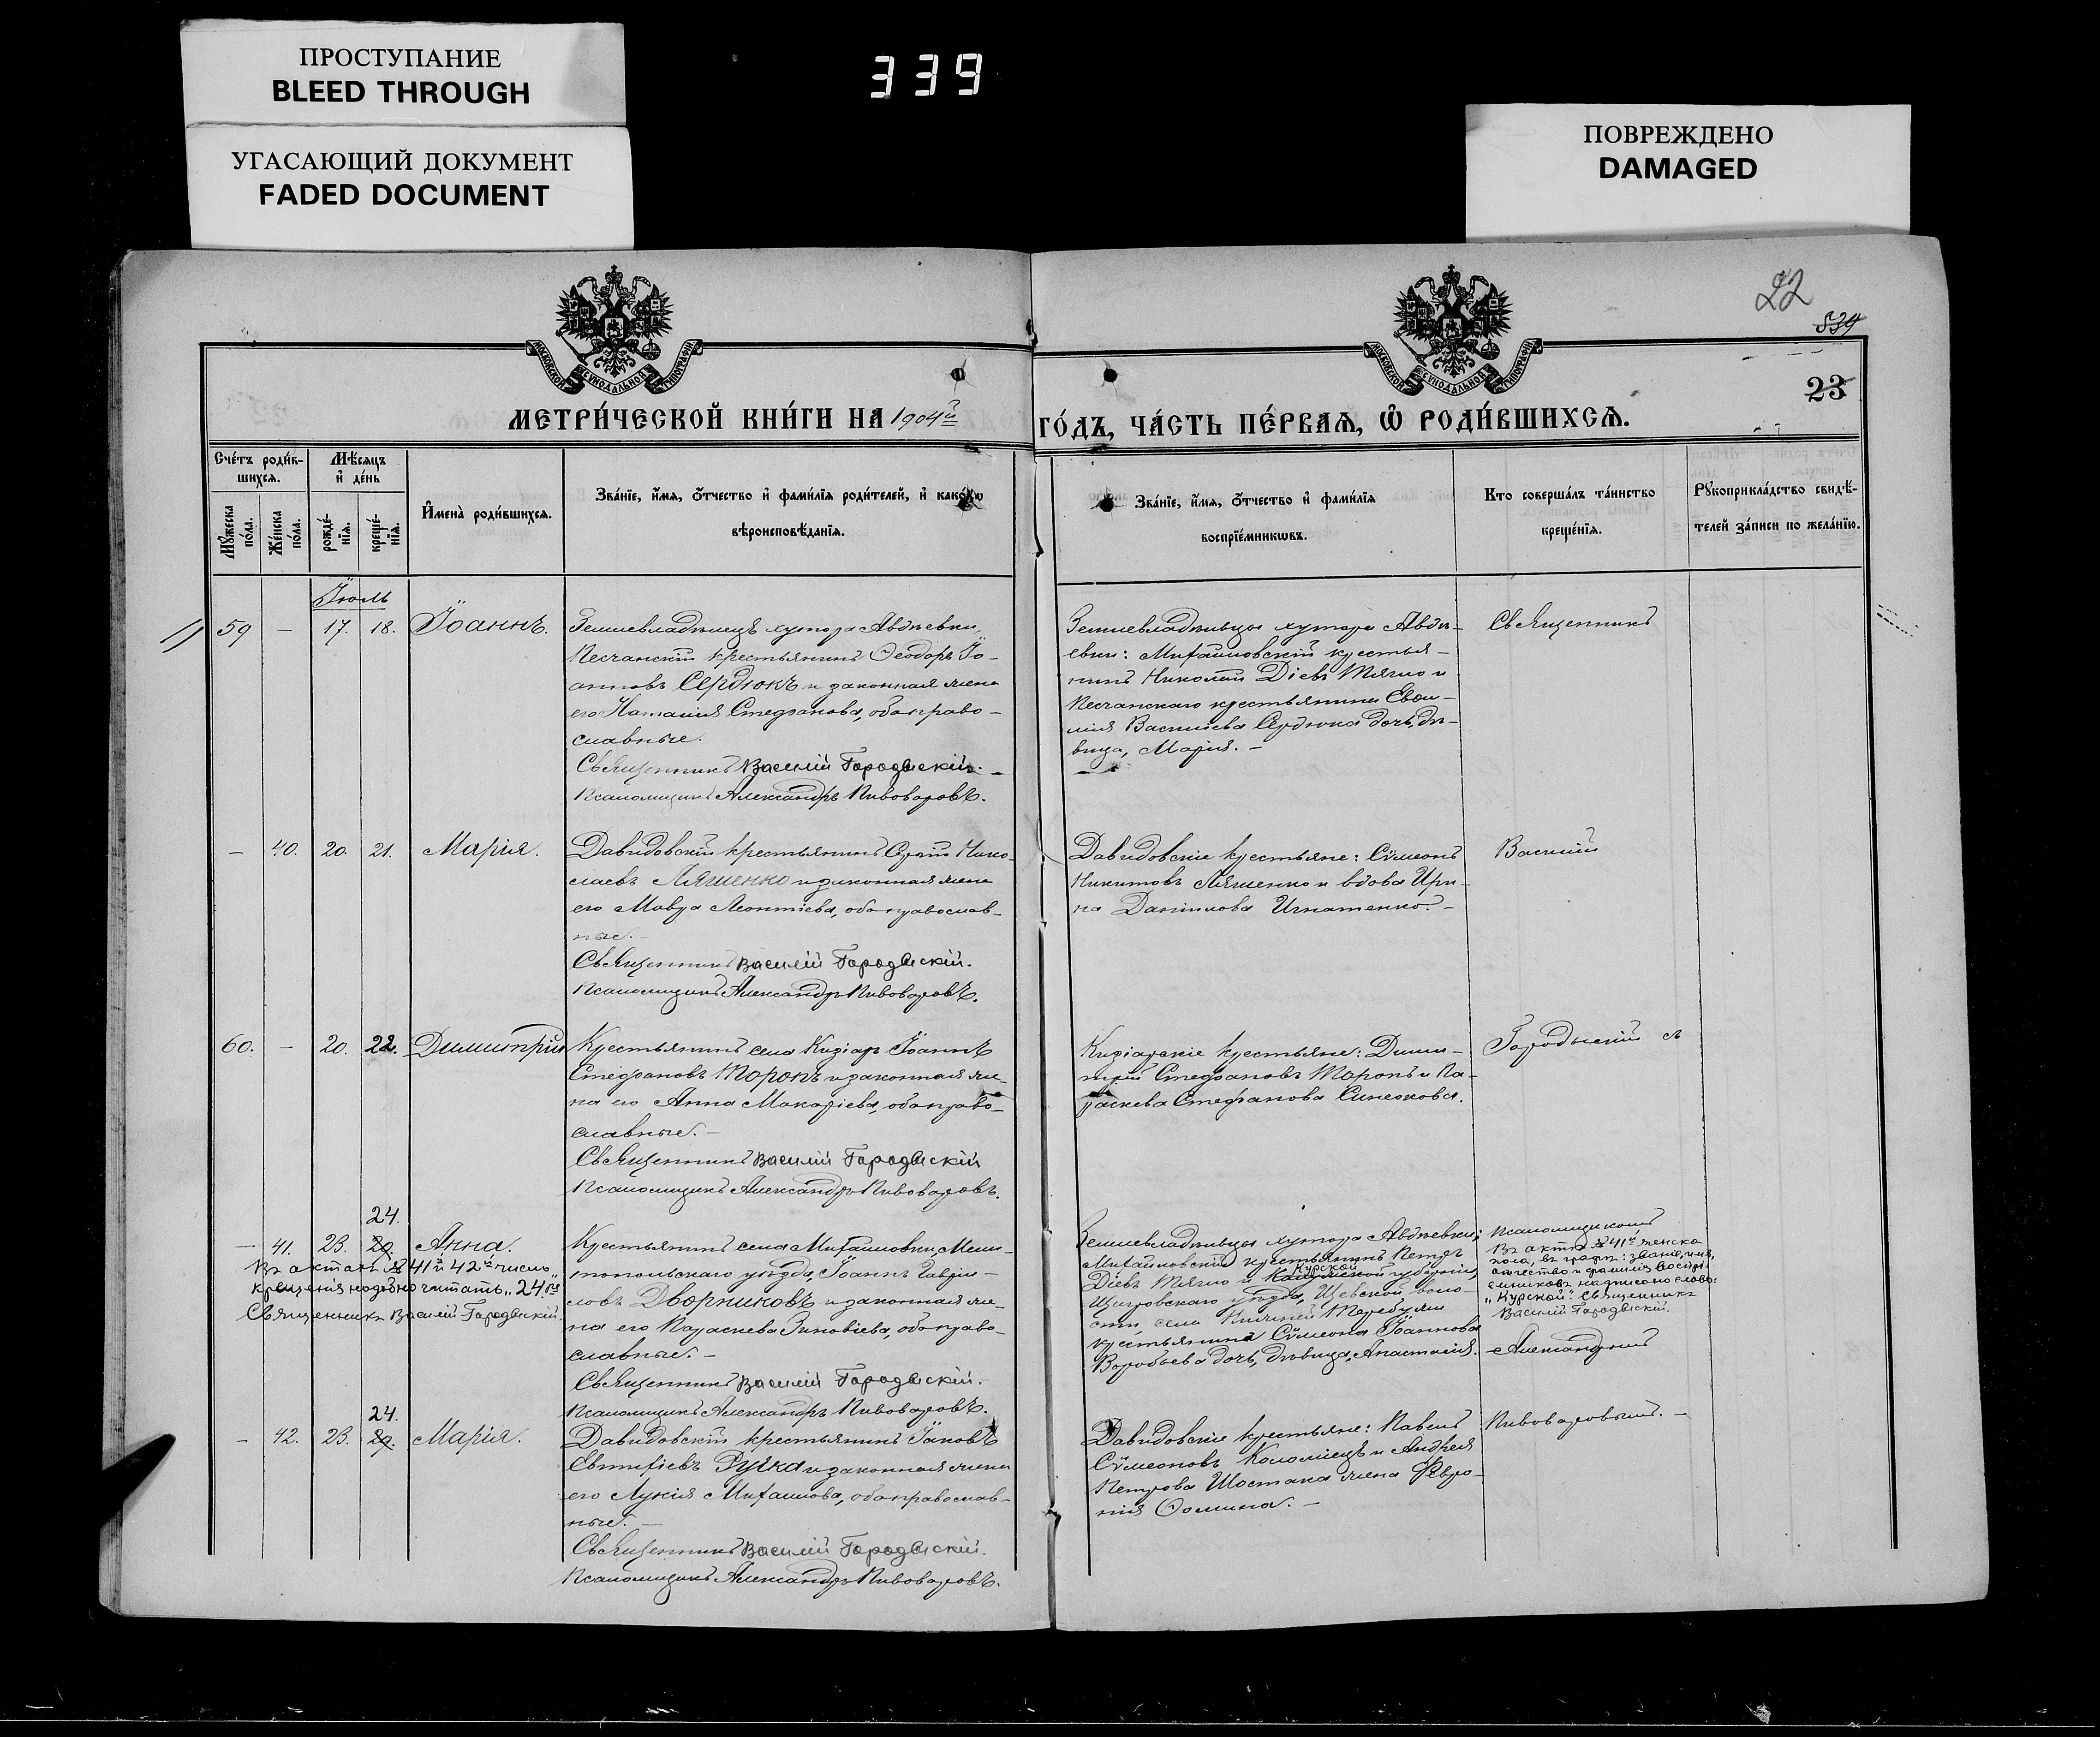 ПРОСТУПАНИЕ
BLEED THROUGH
УГАСАЮЩИЙ ДОКУМЕНТ
FADED DOCUMENT
339
ПОВРЕЖДЕНО
DAMAGED
22
839
23
МОСКОВСКОЙ СѴНОДАЛЬНОЙ ТИПОГРАФІИ
МОСКОВСКОЙ СѴНОДАЛЬНОЙ ТИПОГРАФІИ
МЕТРИ́ЧЕСКОЙ КНИ́ГИ НА 1904й ГО́ДЪ, ЧА́СТЬ ПЕ́РВАЯ, Ѡ҆ РОДИ́ВШИХСЯ.
Сче́тъ роди́в-
шихся.
Мꙋ́жеска по́ла.
Же́нска по́ла.
Мѣ́сяцъ и҆ де́нь
рожде́-нїя.
креще́-нїя.
И҆мена̀ роди́вшихся.
Зва́нїе, и҆́мя, ѻ҆́тчество и҆ фами́лїя роди́телей, и҆ како́гѡ
вѣроисповѣ́данїя.
Зва́нїе, и҆́мя, ѻ҆́тчество и҆ фами́лїя
воспрїе́мникѡвъ.
Кто̀ соверша́лъ та́инство
креще́нїя.
Рꙋкоприкла́дство свидѣ́-
телей за́писи по жела́нїю.
Іюль
59 — 17. 18. Іоаннъ.
Землевладѣлецъ хутора Авдѣевки,
Песчанскій крестьянинъ Ѳеодоръ Іо-
анновъ Сердюкъ и законная жена
его Наталія Стефанова, оба право-
славные.
Священникъ Василій Городыскій.
Псаломщикъ Александръ Пивоваровъ.
Землевладѣльцы хутора Авдѣ-
евки: Михайловскій крестья-
нинъ Николай Діевъ Тягло и
Песчанскаго крестьянина Евѳи-
мія Васильева Сердюка дочь, дѣ-
вица, Марія. —
Священникъ
— 40. 20. 21. Марія.
Давидовскій крестьянинъ Сергій Нико-
лаевъ Ляшенко и законная жена
его Мавра Леонтіева, оба православ-
ные. —
Священникъ Василій Городыскій.
Псаломщикъ Александръ Пивоваровъ.
Давидовскіе крестьяне: Сѵмеонъ
Никитовъ Ляшенко и вдова Ири-
на Даніилова Игнатенко. —
Василій
60. — 20. 22. Димитрій
Крестьянинъ села Кизіаръ Іоаннъ
Стефановъ Торопъ и законная же-
на его Анна Макаріева, оба право-
славные. —
Священникъ Василій Городыскій
Псаломщикъ Александръ Пивоваровъ.
Кизіарскіе крестьяне: Дими-
трій Стефановъ Торопъ и Па-
раскева Стефанова Синеокова.
Городыскій съ
24.
— 41. 23. 29. Анна.
Въ актахъ № 41й и 42й число
крещенія надобно читать „24.го“
Священникъ Василій Городыскій.
Крестьянинъ села Михайловки, Мели-
топольскаго уѣзда, Іоаннъ Гаврiи-
ловъ Дворниковъ и законная же-
на его Параскева Зиновіева, оба право-
славные. —
Священникъ Василій Городыскій.
Псаломщикъ Александръ Пивоваровъ.
Землевладѣльцы хутора Авдѣевки;
Михайловскій крестьянинъ Петръ
Курской
Діевъ Тягло и губерніи,
Щигровскаго уѣзда, воло-
сти села
крестьянина Сѵмеона Іоаннова
Воробьева дочь, дѣвица, Анастасія.
Псаломщикомъ
Въ актѣ № 41й женска
пола, въ графѣ: званіе, имя,
отчество и фамилія воспрі-
емниковъ надписано слово:
„Курской“. Священникъ
Василій Городыскій.
Александромъ
24.
— 42. 23. 29. Марія.
Давидовскій крестьянинъ Іаковъ
Евтихіевъ Ручка и законная жена
его Лукія Михайлова, оба православ-
ные. —
Священникъ Василій Городыскій.
Псаломщикъ Александръ Пивоваровъ.
Давидовскіе крестьяне: Павелъ
Сѵмеоновъ Коломіецъ и Андрея
Петрова Шостака жена Февро-
нія Ѳомина. —
Пивоваровымъ. —